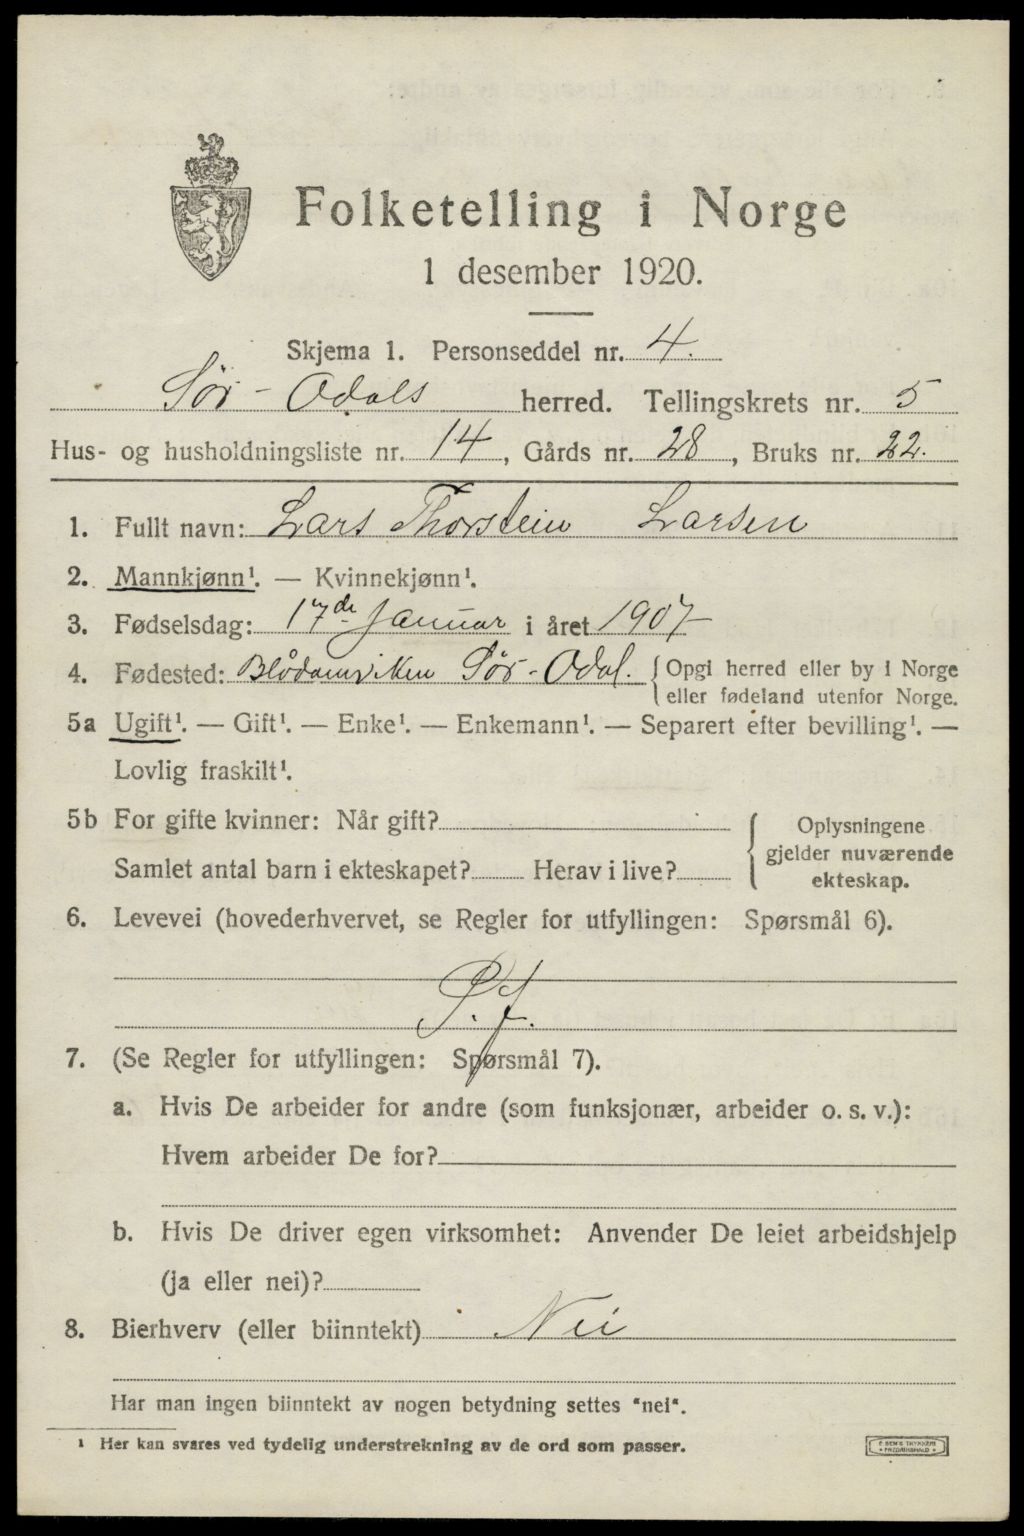 Folketelling i Norge
1 desember 1920.
Skjema 1. Personseddel nr. 4.
Sör-Odals herred. Tellingskrets nr. 5
Hus- og husholdningsliste nr. 14, Gårds nr. 28, Bruks nr. 22.
1. Fullt navn: Lars Thorstein Larsen
2. Mannkjønn¹. — Kvinnekjønn¹.
3. Fødselsdag: 17de Januar i året 1907
4. Fødested: Sör-Odal. Opgi herred eller by i Norge
eller fødeland utenfor Norge.
5a Ugift¹. — Gift¹. — Enke¹. — Enkemann¹. — Separert efter bevilling¹. —
Lovlig fraskilt¹.
5b For gifte kvinner: Når gift? Oplysningene
gjelder nuværende
Samlet antal barn i ekteskapet? Herav i live? ekteskap.
6. Levevei (hovederhvervet, se Regler for utfyllingen: Spørsmål 6).
7. (Se Regler for utfyllingen: Spørsmål 7).
a. Hvis De arbeider for andre (som funksjonær, arbeider o. s. v.):
Hvem arbeider De for?
b. Hvis De driver egen virksomhet: Anvender De leiet arbeidshjelp
(ja eller nei)?
8. Bierhverv (eller biinntekt) Nei
Har man ingen biinntekt av nogen betydning settes "nei".
¹ Her kan svares ved tydelig understrekning av de ord som passer.